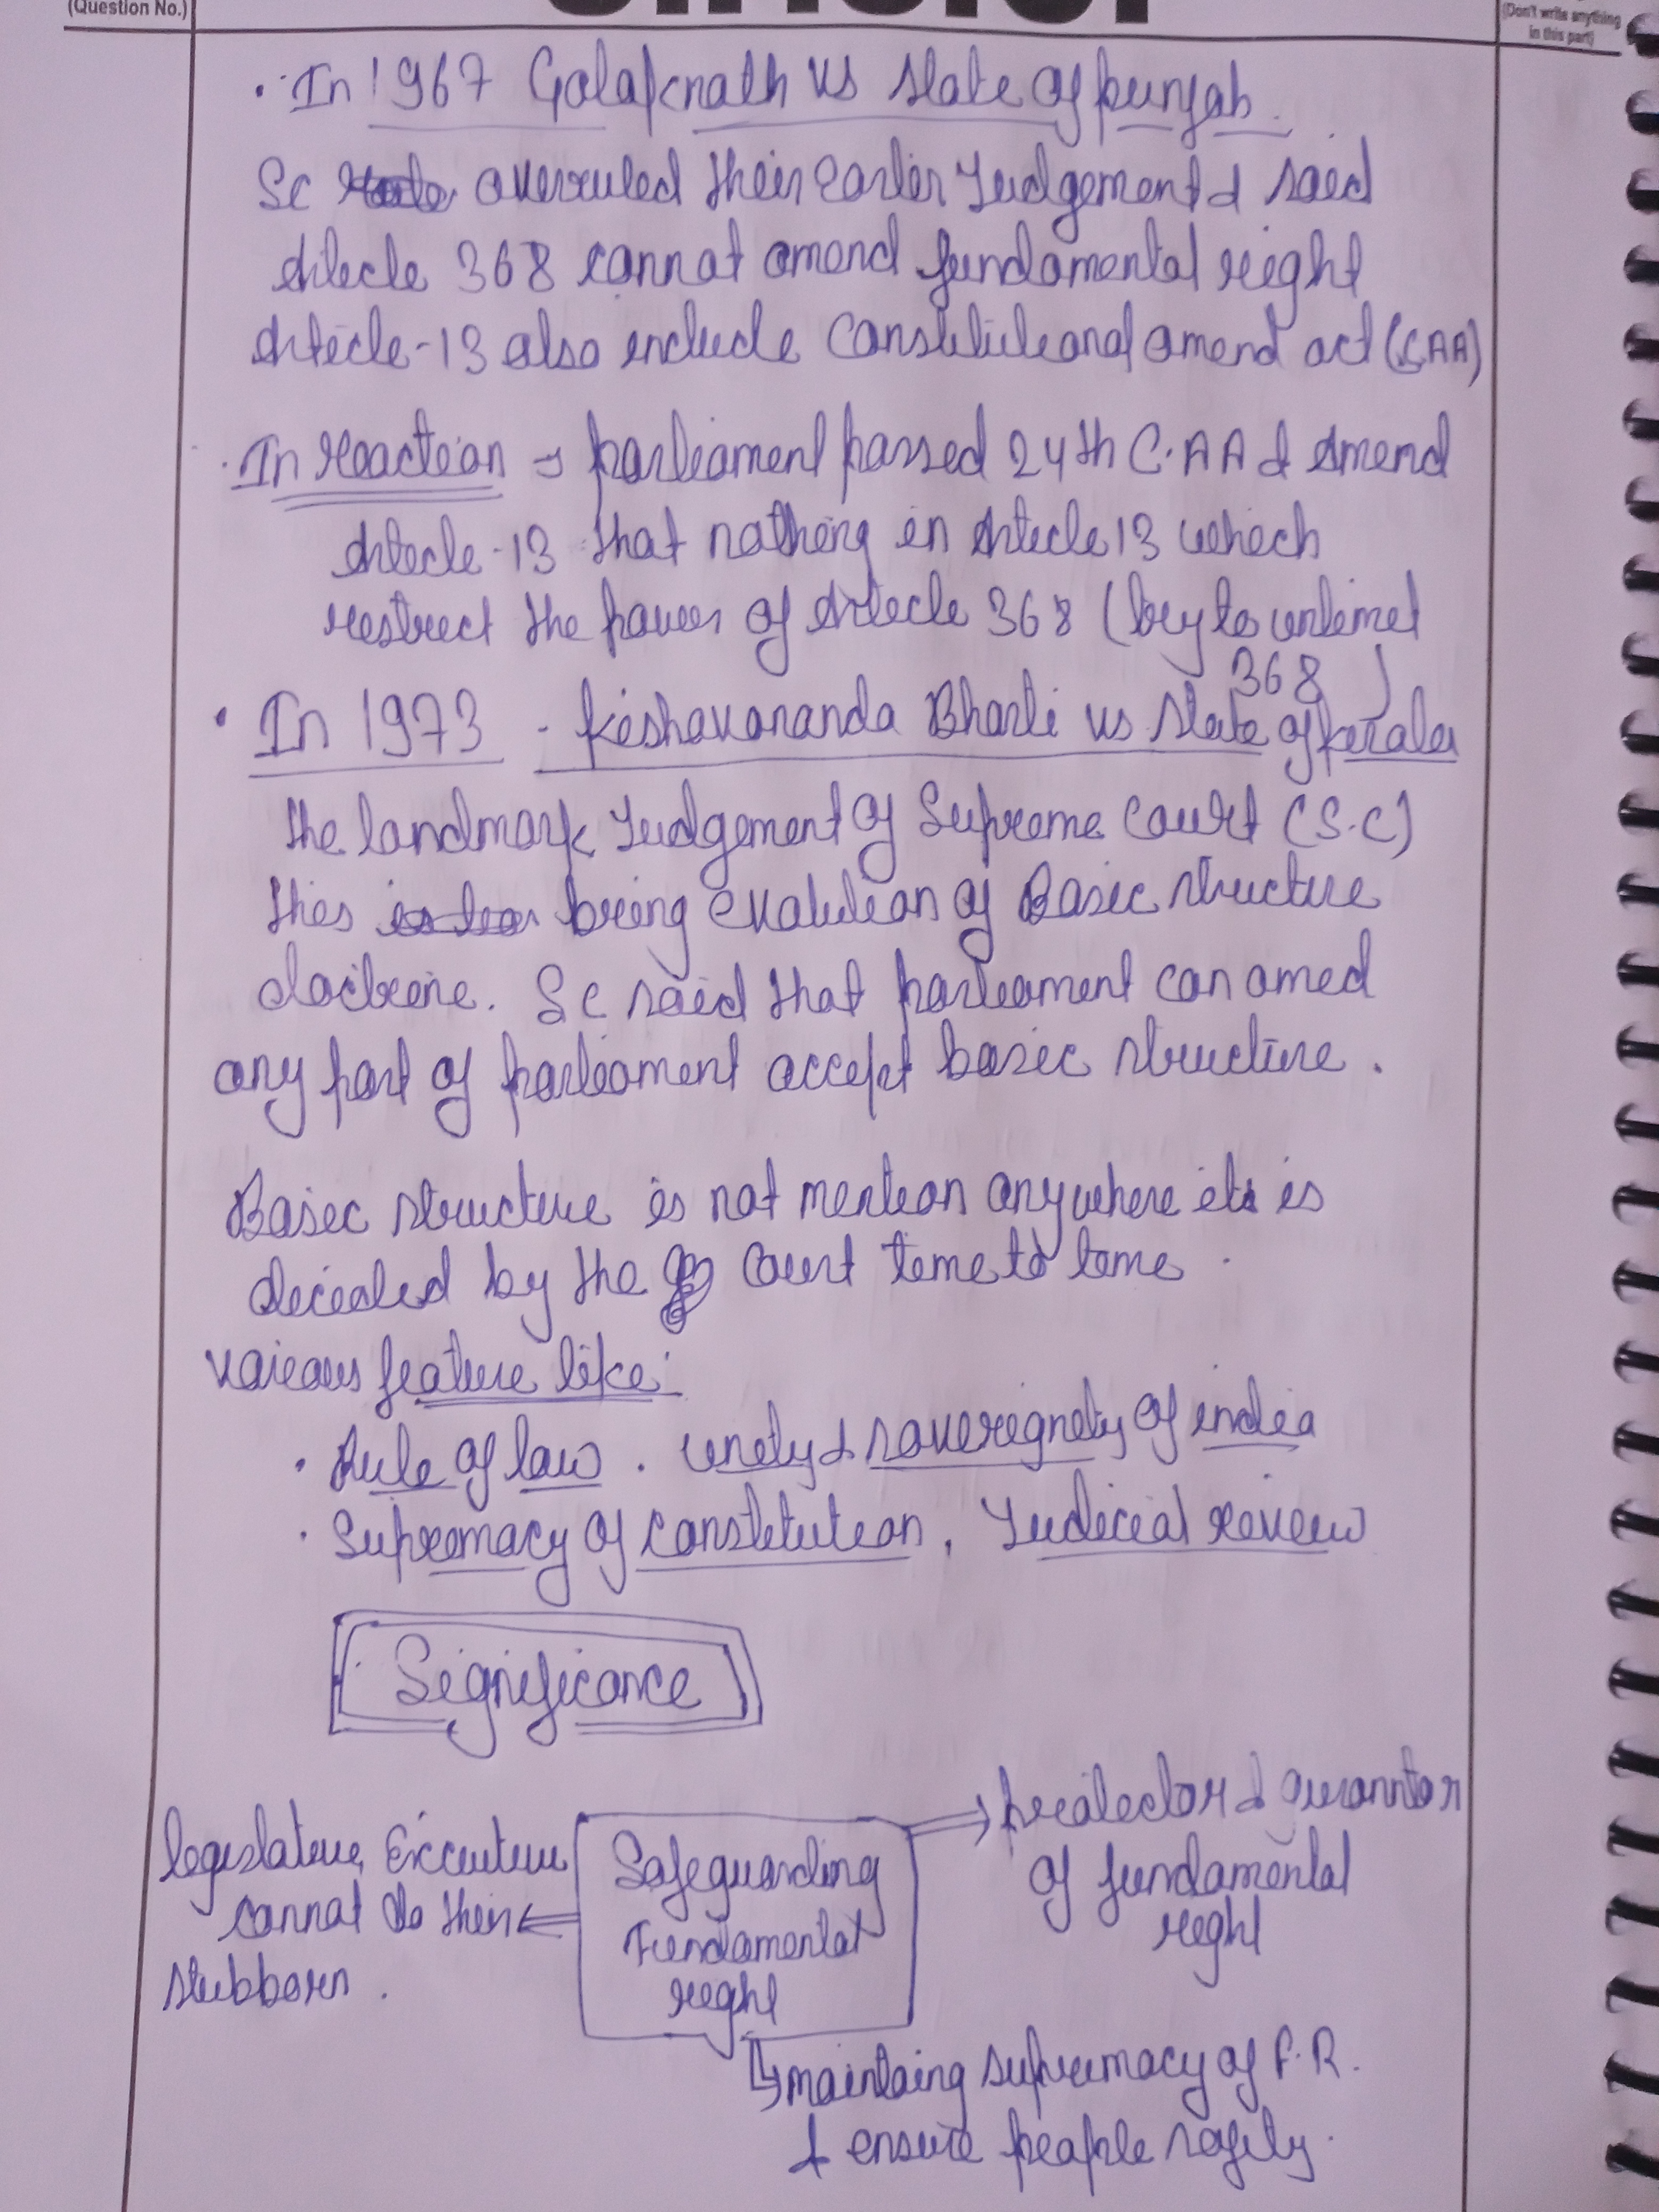 (Question No.)
(Don't write anything
in this part)
· In 1967 Golaknath vs State of punjab.
SC overruled their earlier Judgement & said
Article 368 cannot amend fundamental right
Article-13 also include Constitutional amend act (CAA)
· In reaction → parliament passed 24th C.AA & Amend
Article-13 that nothing in Article 13 which
restrict the power of Article 368 (try to unlimet
368)
· In 1973 - Keshavananda Bharti vs State of kerala
the landmark Judgement of Supreme Court (S.C)
this bring evalution of Basic structure
doctrine. SC said that parliament can amed
any part of parliament accept basic structure.
Basic structure is not mention anywhere its is
decided by the Court time to time.
various feature like:-
· Rule of law . unity & soveregnety of india
· Supremacy of constitution, Judicial review
Significance
→ protector & gurantor
of fundamental
right
legislature, Executive
cannot do their
stubborn.
Safeguarding
Fundamental
right
↳ maintaing supremacy of F.R.
& ensure people safety.